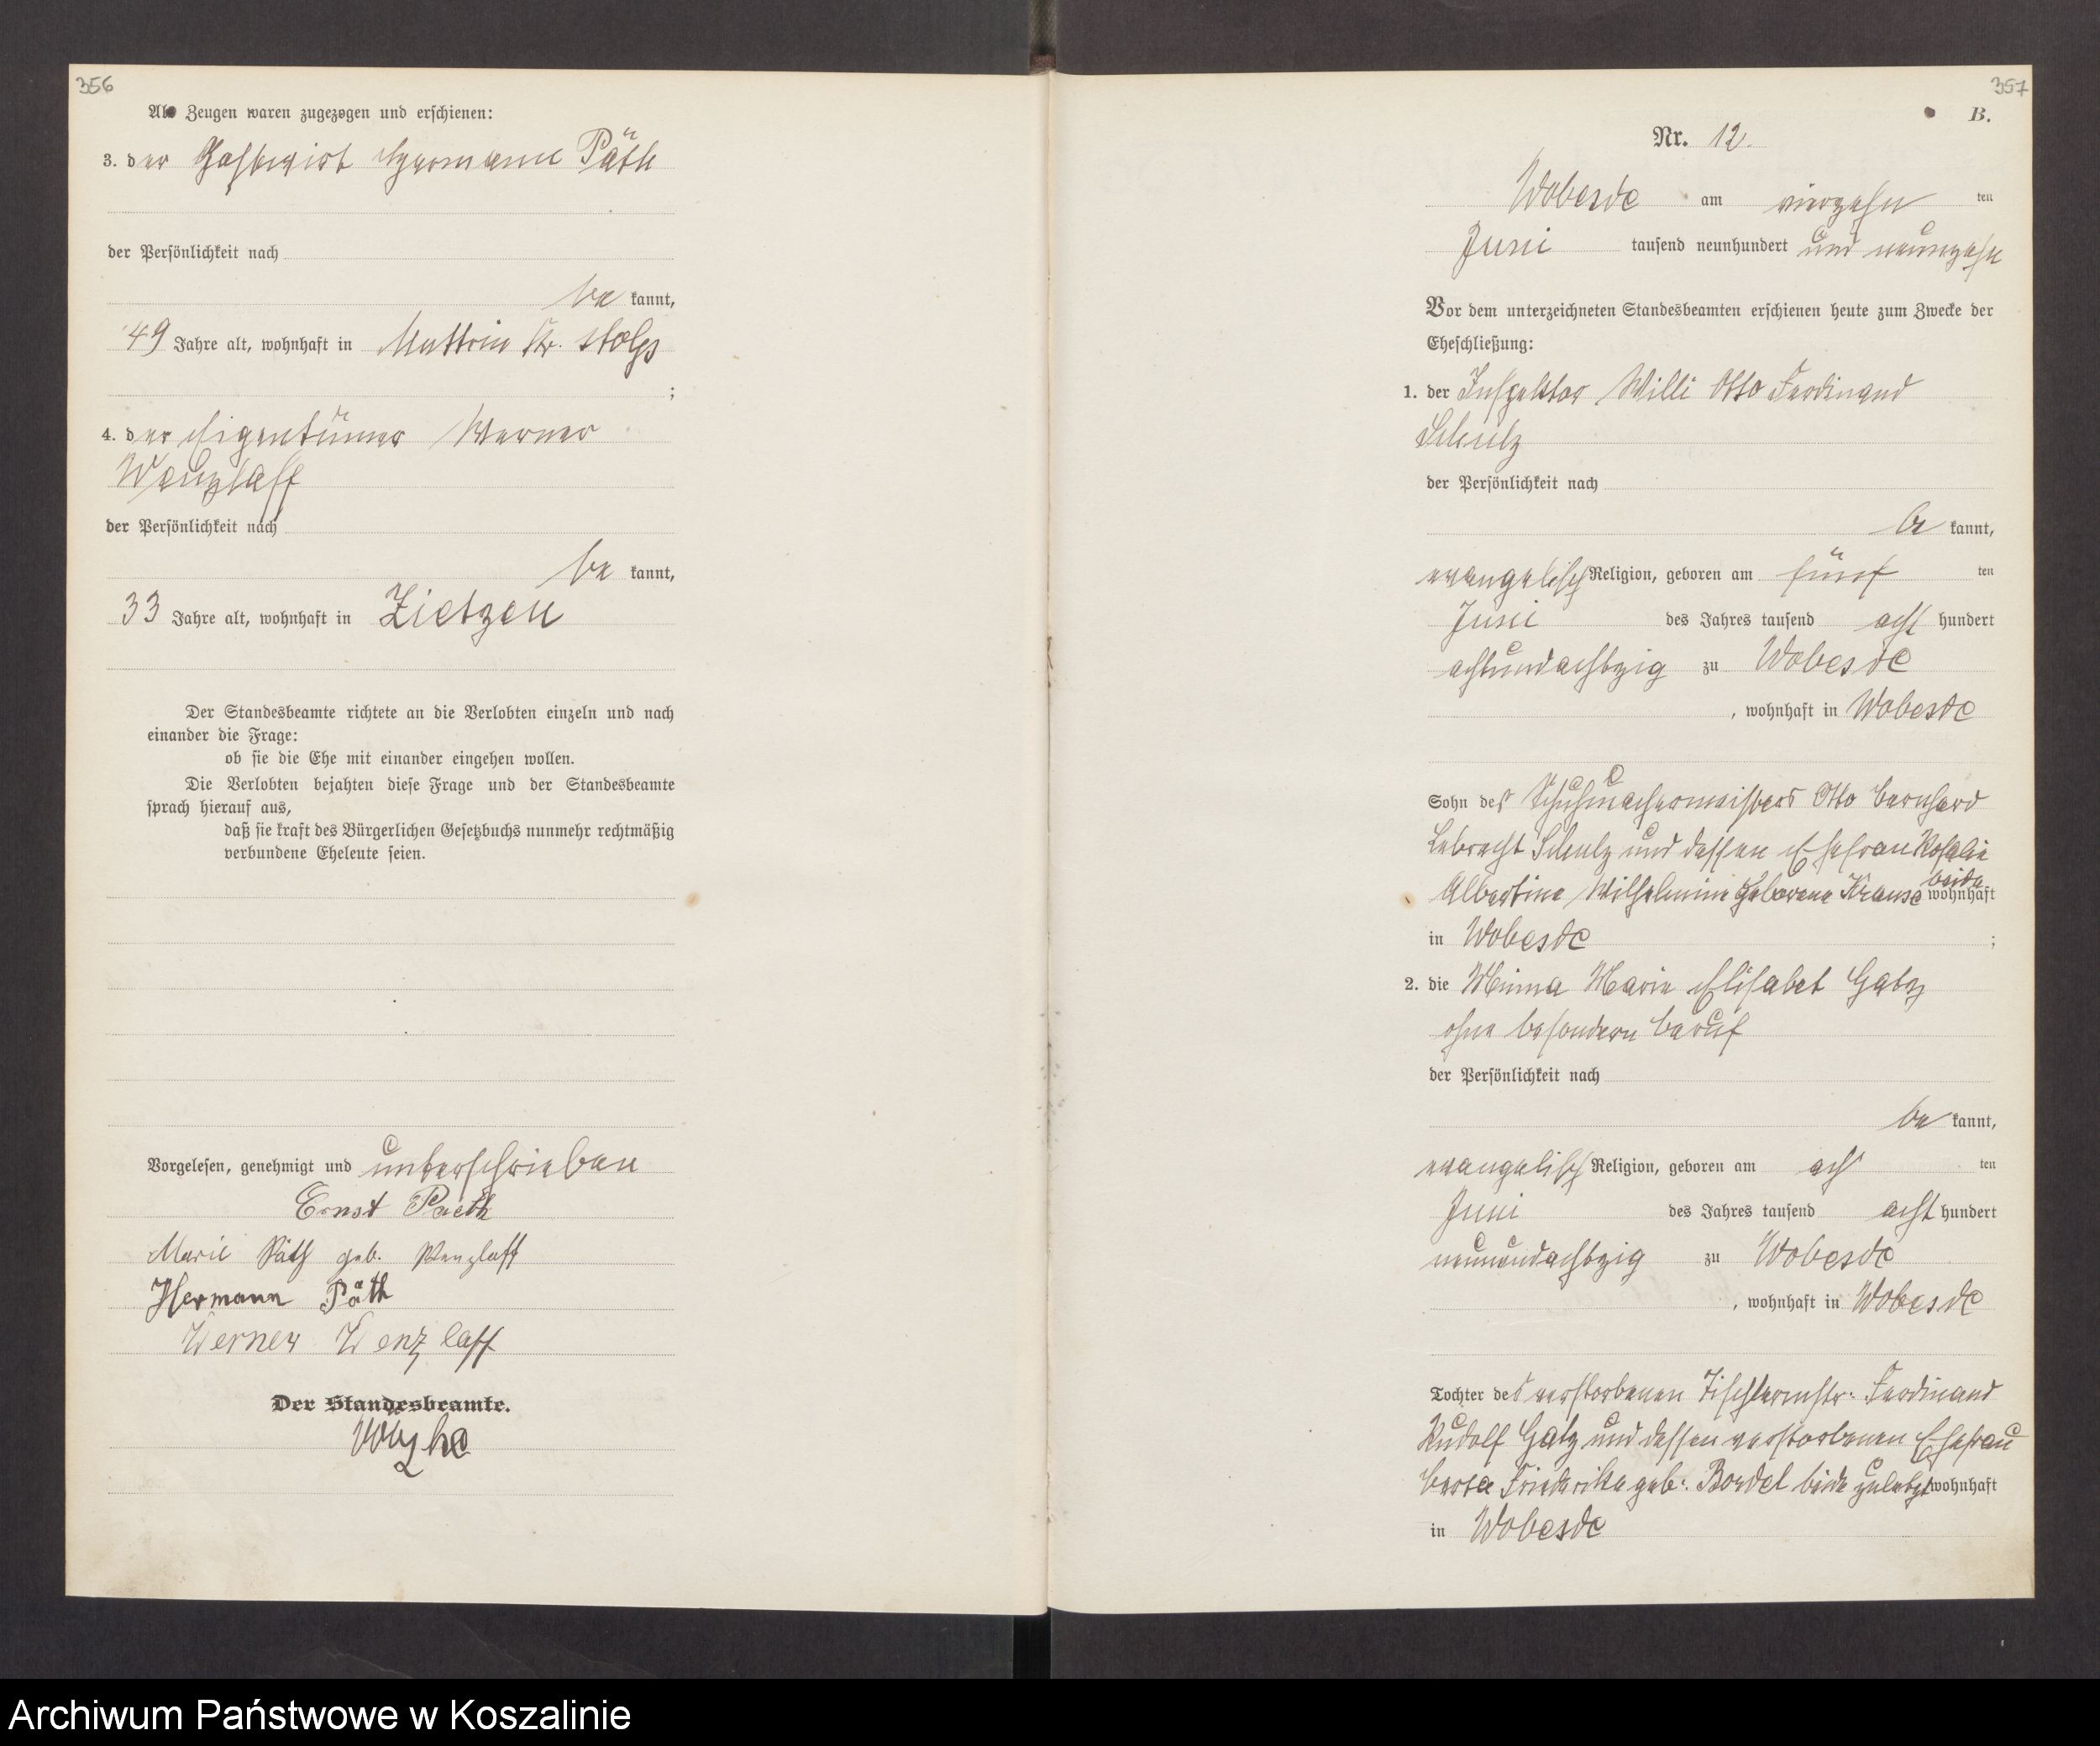 356
Als Zeugen waren zugezogen und erschienen:
3. der Gastwirt Hermann Päth
der Persönlichkeit nach
be kannt,
49 Jahre alt, wohnhaft in Muttrin Kr. Stolp
;
4. der Eigentümer Werner
Wenzlaff
der Persönlichkeit nach
be kannt,
33 Jahre alt, wohnhaft in Zietzen
Der Standesbeamte richtete an die Verlobten einzeln und nach
einander die Frage:
ob sie die Ehe mit einander eingehen wollen.
Die Verlobten bejahten diese Frage und der Standesbeamte
sprach hierauf aus,
daß sie kraft des Bürgerlichen Gesetzbuchs nunmehr rechtmäßig
verbundene Eheleute seien.
Vorgelesen, genehmigt und unterschrieben
Ernst Paeth
Marie Päth geb. Wenzlaff
Hermann Päth
Werner Wenzlaff
Der Standesbeamte.
357
B.
Nr. 12.
Wobesde am vierzehn ten
Juni tausend neunhundert und neunzehn
Vor dem unterzeichneten Standesbeamten erschienen heute zum Zwecke der
Eheschließung:
1. der Inspektor Willi Otto Ferdinand
Schulz
der Persönlichkeit nach
be kannt,
evangelisch Religion, geboren am fünf ten
Juni des Jahres tausend acht hundert
achtundachtzig zu Wobesde
, wohnhaft in Wobesde
Sohn des Schuhmachermeisters Otto Bernhard
Lebrecht Schulz und dessen Ehefrau Rosalie
Albertine Wilhelmine geborene Krause beide wohnhaft
in Wobesde ;
2. die Minna Marie Elisabet Gatz
ohne besondern Beruf
der Persönlichkeit nach
be kannt,
evangelisch Religion, geboren am ach ten
Juni des Jahres tausend acht hundert
neunundachtzig zu Wobesde
, wohnhaft in Wobesde
Tochter des verstorbenen Tischlermstr. Ferdinand
Rudolf Gatz und dessen verstorbenen Ehefrau
Berta Friederike geb. Bordel beide zuletzt wohnhaft
in Wobesde
Archiwum Państwowe w Koszalinie